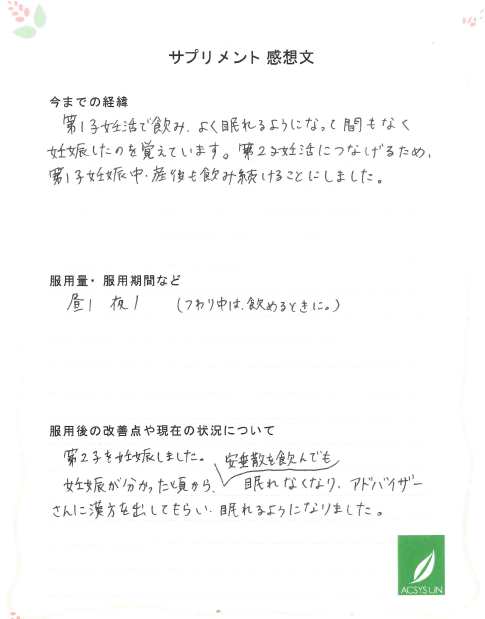 サプリメント 感想文
今までの経緯
第1子妊活で飲み、よく眠れるようになって間もなく
妊娠したのを覚えています。第2子妊活につなげるため、
第1子妊娠中・産後も飲み続けることにしました。
服用量・服用期間など
昼1 夜1 (つわり中は、飲めるときに。)
服用後の改善点や現在の状況について
第2子を妊娠しました。
安亜散を飲んでも
妊娠が分かった頃から、眠れなくなり、アドバイザー
さんに漢方を出してもらい、眠れるようになりました。
ACSYSUN